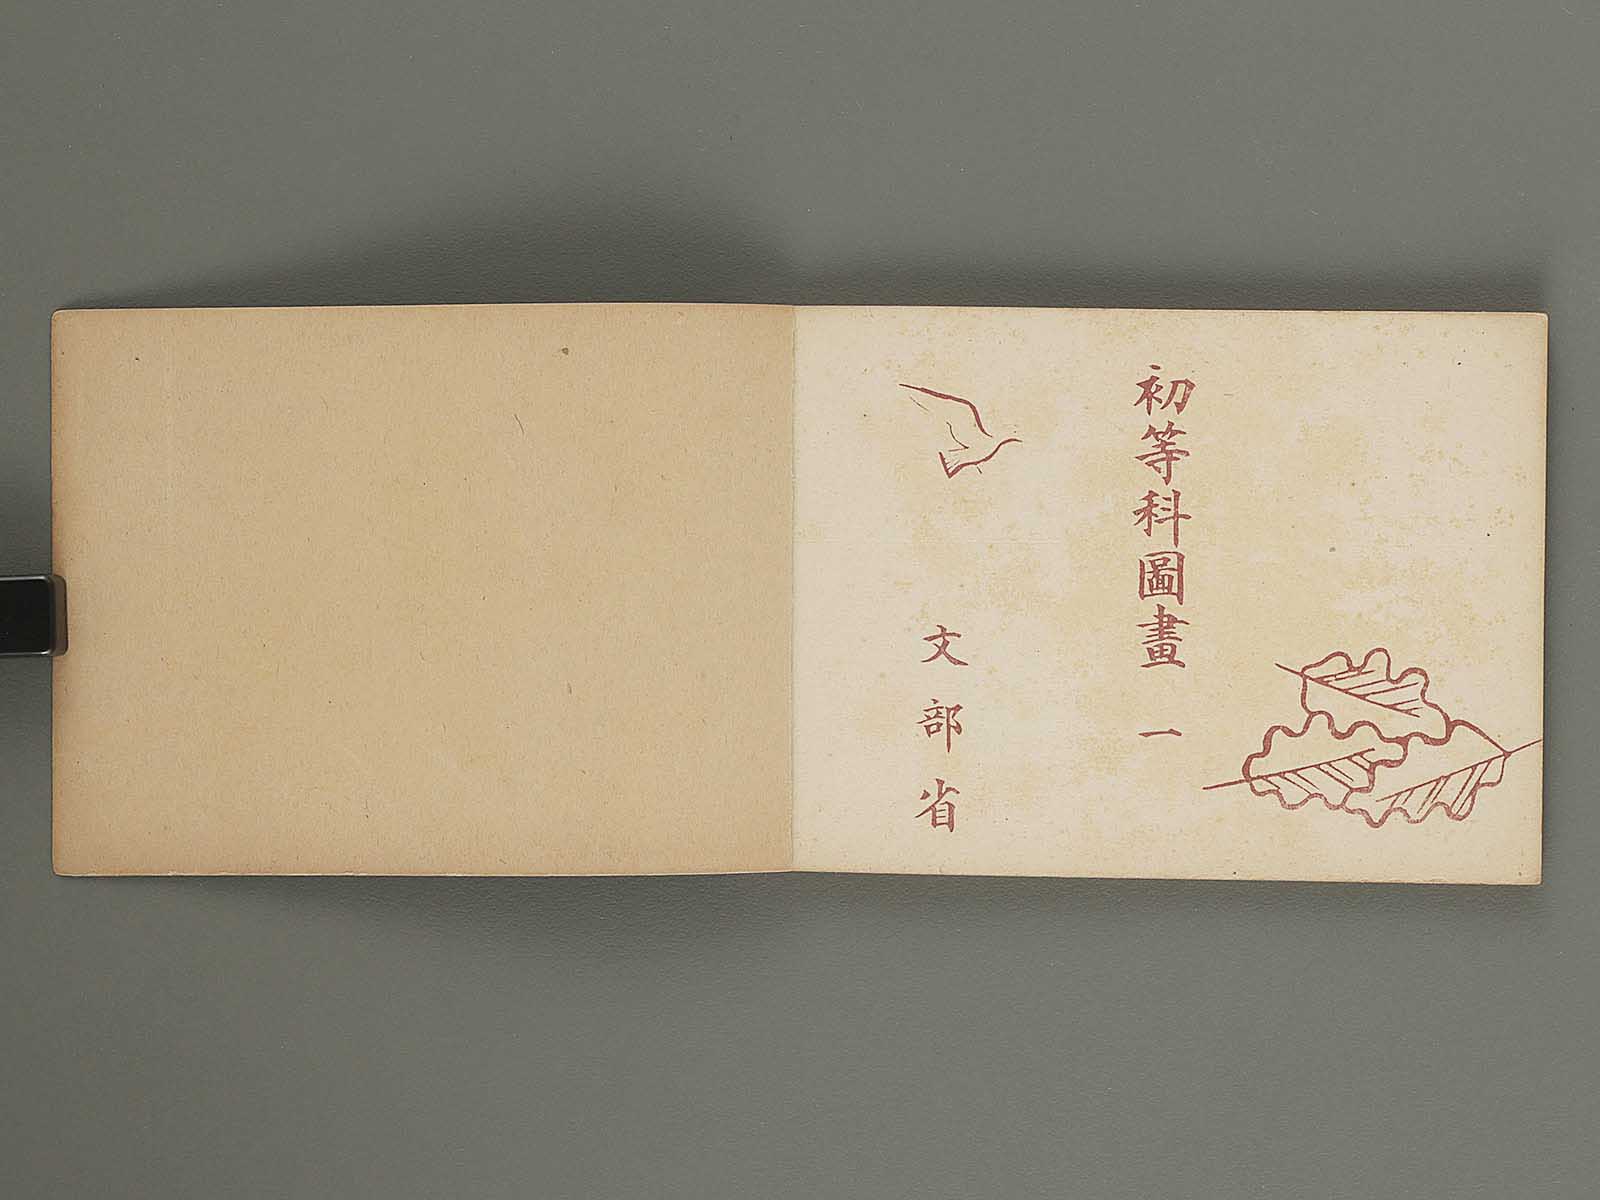 初等科圖畫 一
文部省